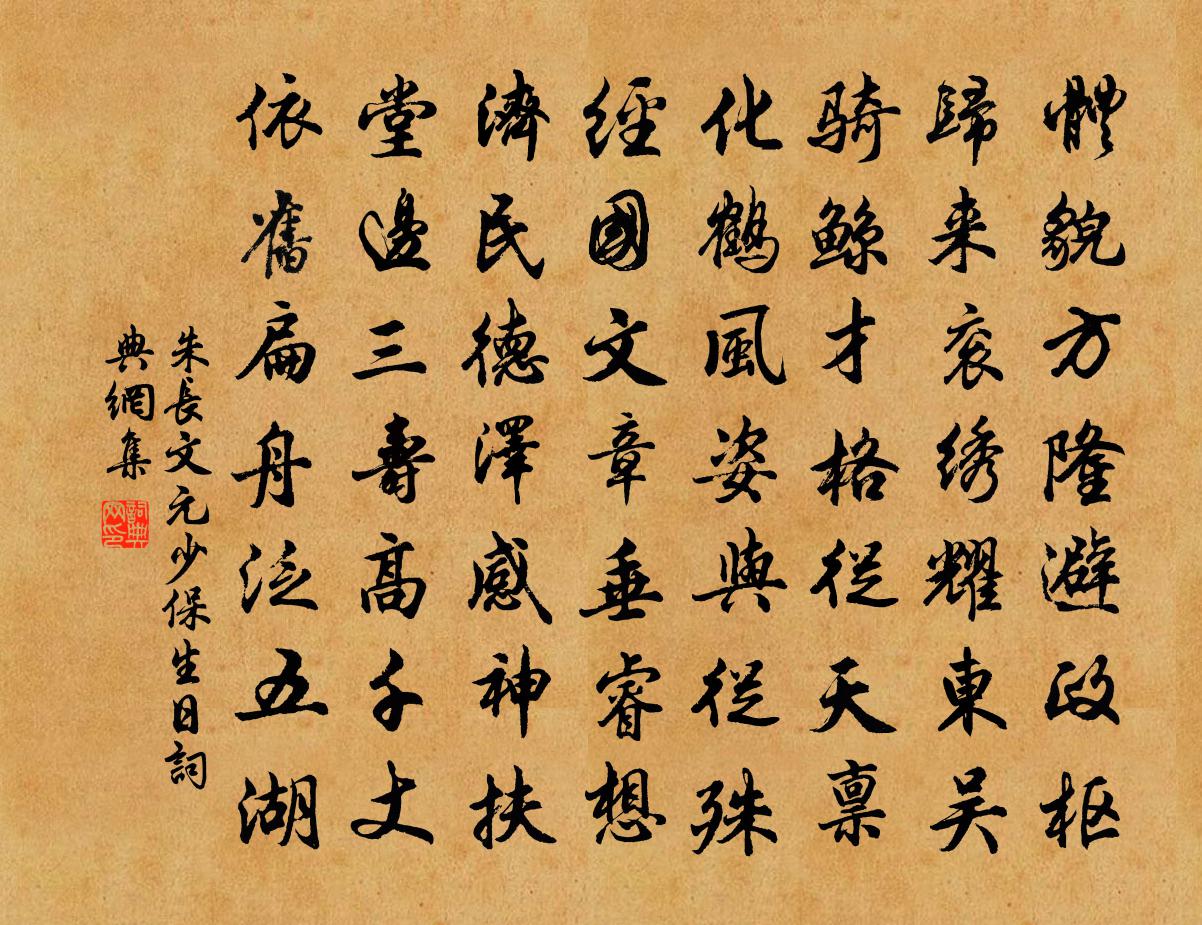 體貌方隆避政枢
歸来衮绣耀東吴
骑鲸才格從天禀
化鶴風姿與從殊
經國文章垂睿想
濟民德澤感神扶
堂邊三壽高千丈
依舊扁舟泛五湖
朱長文元少保生日詞
典網集
詞典网印